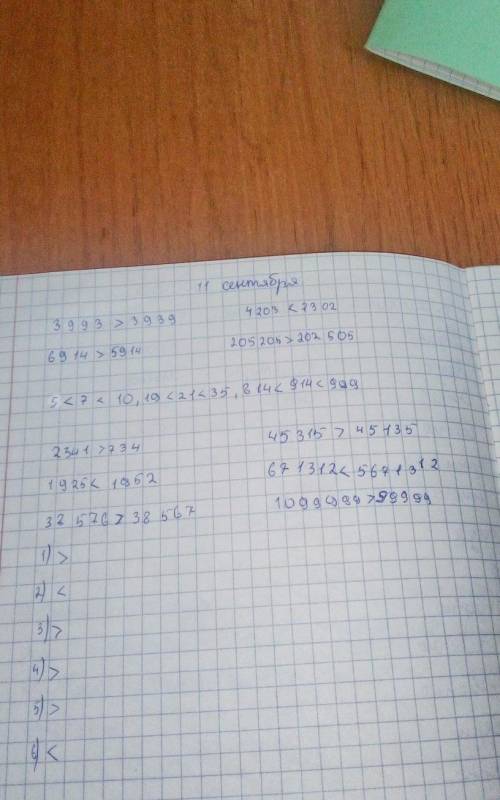 11 сентября
3993 > 3939
4203 < 7302
6914 > 5914
205205 > 202505
5 < 7 < 10, 19 < 21 < 35, 814 < 914 < 999
2341 > 734
45315 > 45135
1925 < 1952
671312 < 5671312
38 576 > 38 567
1099999 > 99999
1) >
2) <
3) >
4) >
5) >
6) <